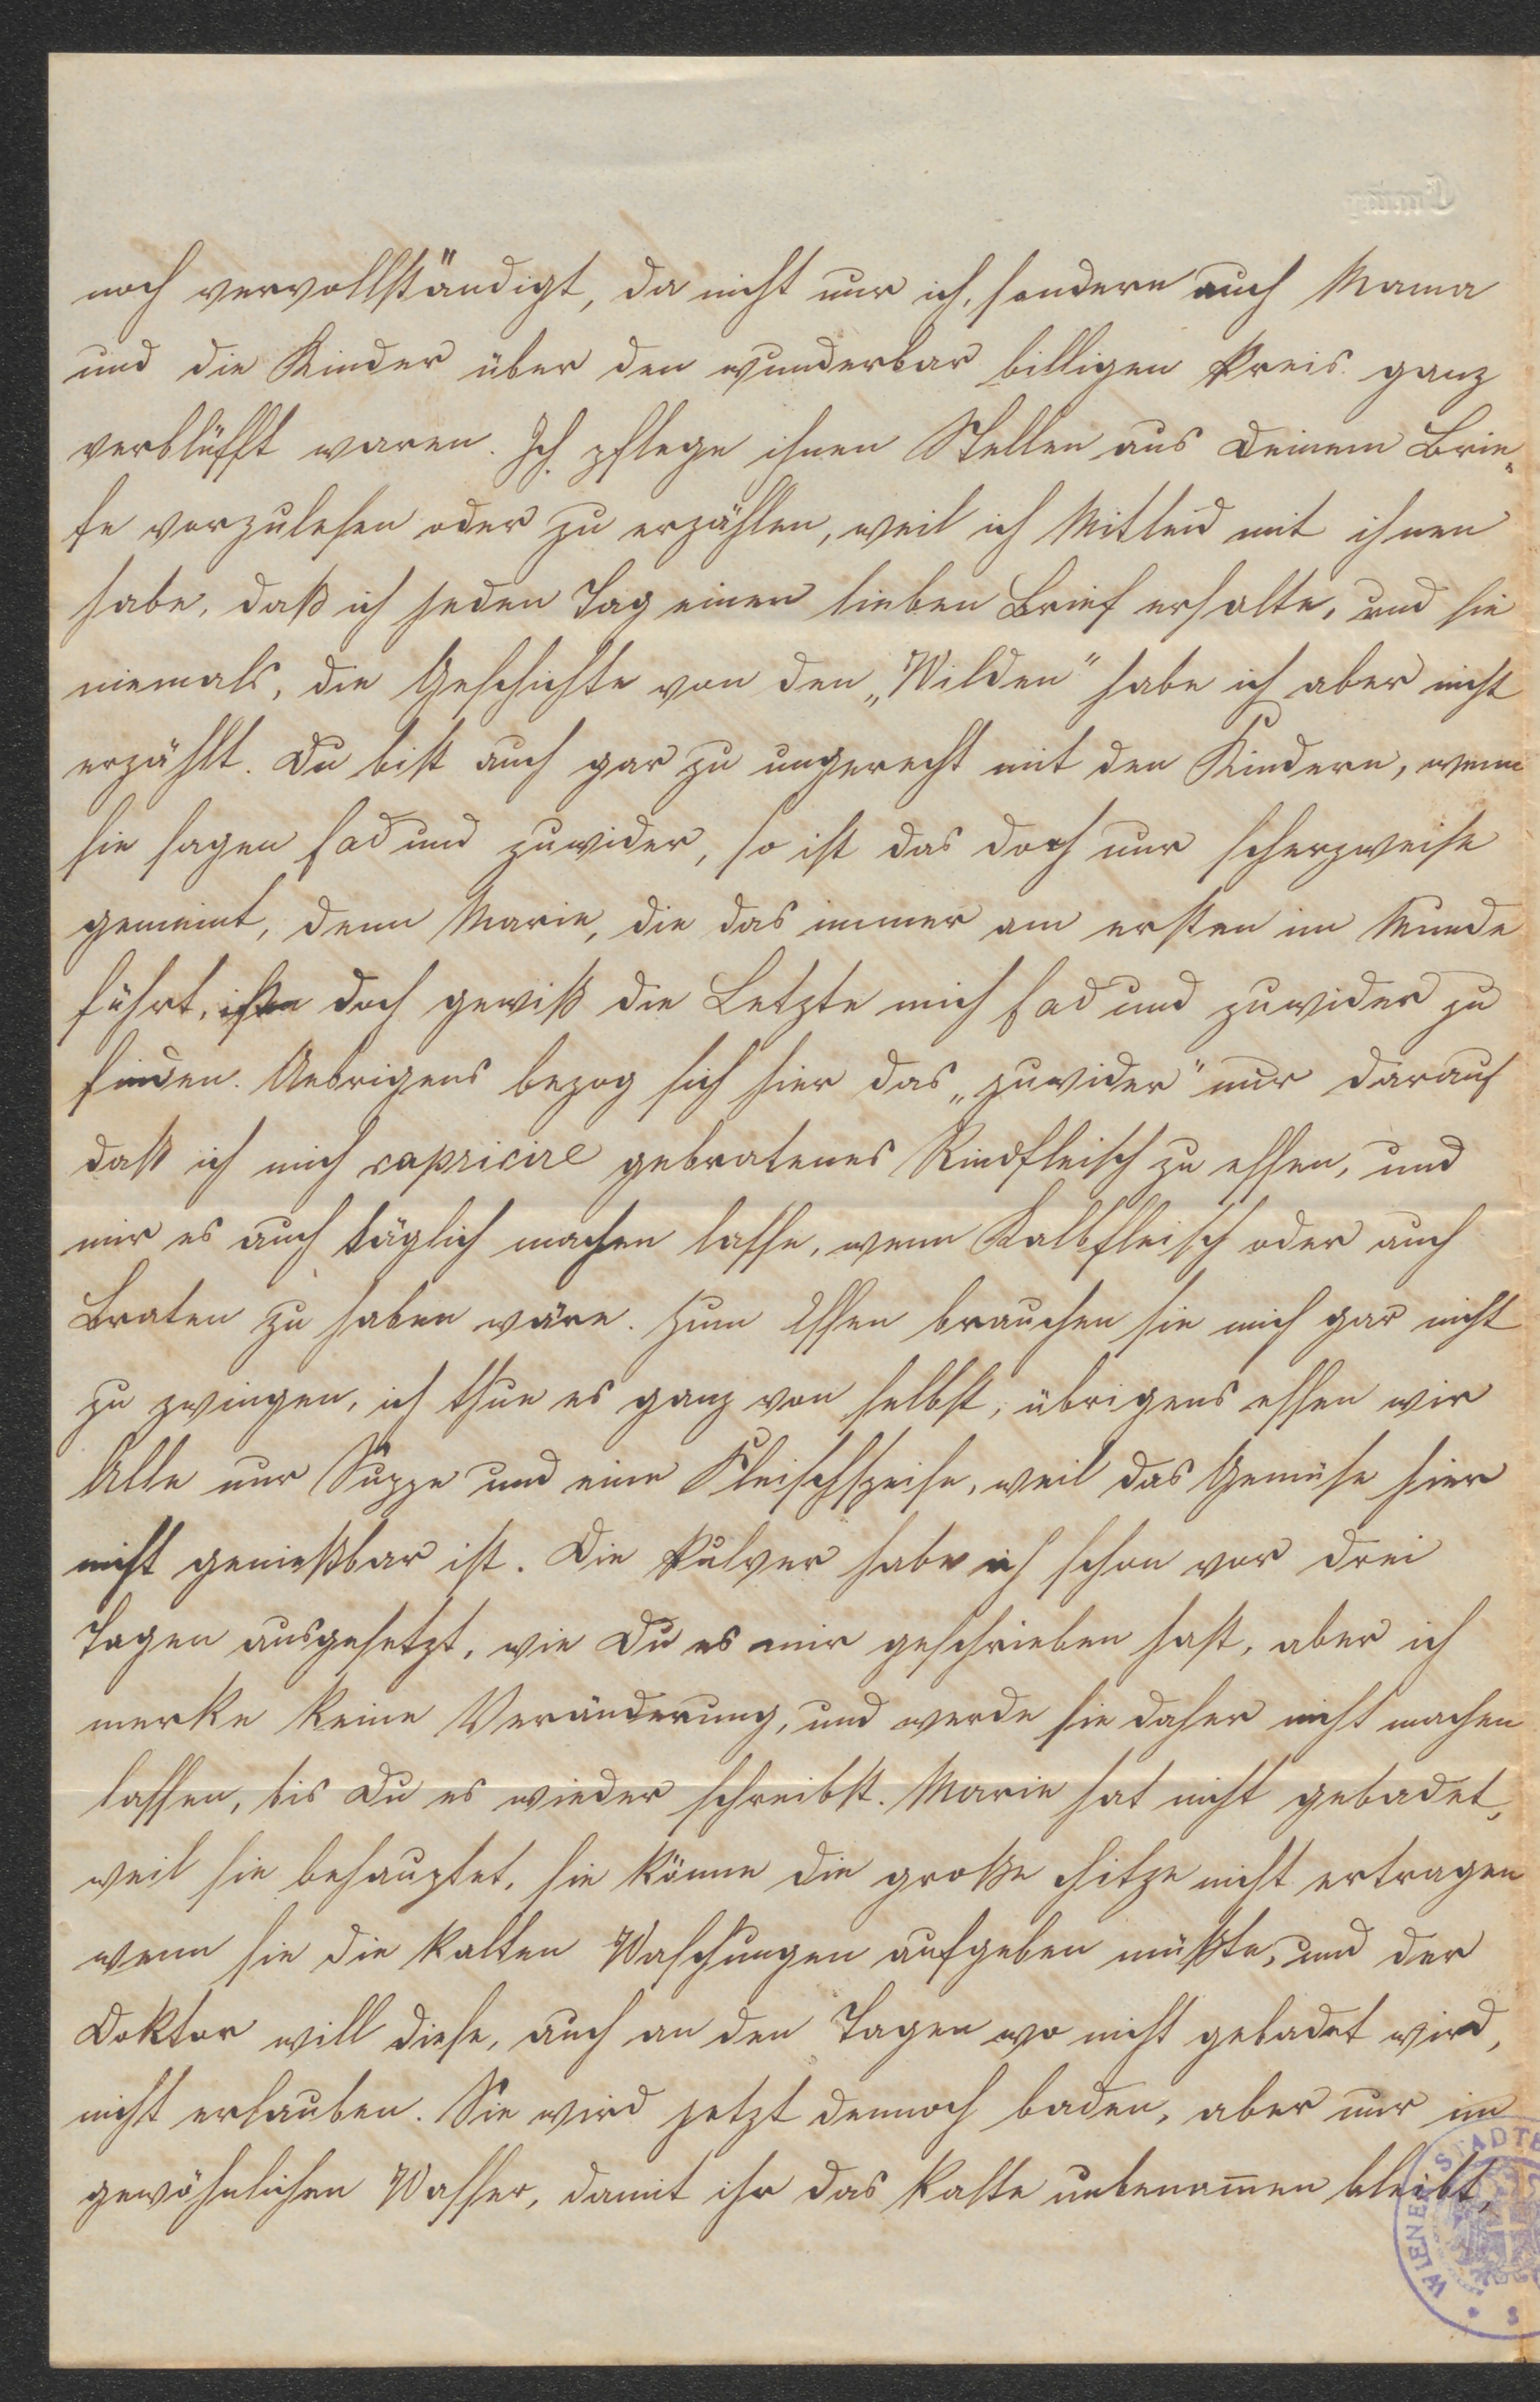 noch vervollständigt, da nicht nur ich, sondern auch Mama
und die Kinder über den wunderbar billigen Preis ganz
verblüfft waren. Ich pflege ihnen Stellen aus Deinem Brie„
fe vorzulesen oder zu erzählen, weil ich Mitleid mit ihnen
habe, daß ich jeden Tag einen lieben Brief erhalte, und sie
niemals, die Geschichte von den „Wilden" habe ich aber nicht
erzählt. Du bist auch gar zu ungerecht mit den Kindern, wenn
sie sagen fad und zuwider, so ist das doch nur scherzweise
gemeint, denn Marie, die das immer am ersten im Munde
führt, ist doch gewiß die Letzte mich fad und zuwider zu
finden. Uebrigens bezog sich hier das „zuwider" nur darauf
daß ich mich capricire gebratenes Rindfleisch zu essen, und
mir es auch täglich machen lasse, wenn Kalbfleisch oder auch
Braten zu haben wäre. Zum Essen brauchen sie mich gar nicht
zu zwingen, ich thue es ganz von selbst, übrigens essen wir
Alle nur Suppe und eine Fleischspeise, weil das Gemüse hier
nicht genießbar ist. Die Pulver habe ich schon vor drei
Tagen ausgesetzt, wie Du es mir geschrieben hast, aber ich
merke keine Veränderung, und werde sie daher nicht machen
lassen, bis Du es wieder schreibst. Marie hat nicht gebadet,
weil sie behauptet, sie könne die große Hitze nicht ertragen
wenn sie die kalten Waschungen aufgeben müßte, und der
Doktor will diese, auch an den Tagen wo nicht gebadet wird,
nicht erlauben. Sie wird jetzt dennoch baden, aber nur im
gewöhnlichen Wasser, damit ihr das Kalte unbenom̅en bleibt,
WIENER STADTB